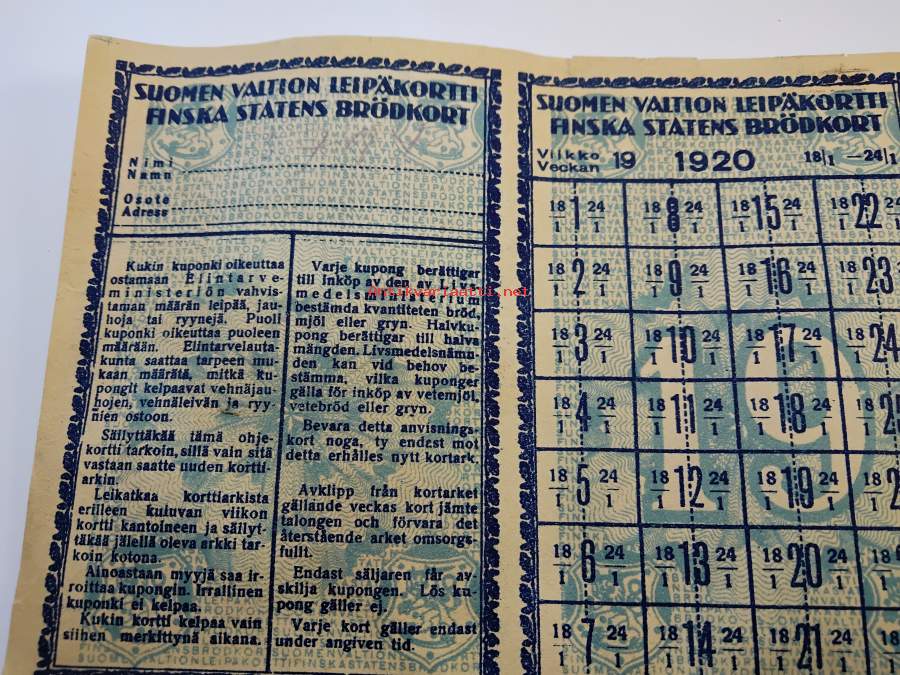 SUOMEN VALTION LEIPÄKORTTI
FINSKA STATENS BRÖDKORT
Nimi
Namn
Osote
Adress
Kukin kuponki oikeuttaa
ostamaan Elintarve-
ministeriön vahvis-
taman määrän leipää, jau-
hoja tai ryynejä. Puoli
kuponki oikeuttaa puoleen
määrään. Elintarvelauta-
kunta saattaa tarpeen mu-
kaan määrätä, mitkä ku-
pongit kelpaavat vehnäjau-
hojen, vehnäleivän ja ryy-
nien ostoon.
Säilyttäkää tämä ohje-
kortti tarkoin, sillä vain sitä
vastaan saatte uuden kortti-
arkin.
Leikatkaa korttiarkista
erilleen kuluvan viikon
kortti kantoineen ja säilyt-
täkää jälellä oleva arkki tar-
koin kotona.
Ainoastaan myyjä saa ir-
roittaa kupongin. Irrallinen
kuponki ei kelpaa.
Kukin kortti kelpaa vain
siihen merkittynä aikana.
Varje kupong berättigar
till inköp av den av
medelsm
bestämda kvantiteten bröd,
mjöl eller gryn. Halvku-
pong berättigar till halva
mängden. Livsmedelsnämn-
den kan vid behov be-
stämma, vilka kuponger
gälla för inköp av vetemjöl,
vetebröd eller gryn.
Bevara detta anvisnings-
kort noga, ty endast mot
detta erhålles nytt kortark.
Avklipp från kortarket
gällande veckas kort jämte
talongen och förvara det
återstående arket omsorgs-
fullt.
Endast säljaren får av-
skilja kupongen. Lös ku-
pong gäller ej.
Varje kort gäller endast
under angiven tid.
antikvariaatti.net
SUOMEN VALTION LEIPÄKORTTI
FINSKA STATENS BRÖDKORT
Viikko
Veckan 19 1920 18/1 —24/1
18/1 1 24/1 18/1 8 24/1 18/1 15 24/1 18/1 22 24/1
18/1 2 24/1 18/1 9 24/1 18/1 16 24/1 18/1 23
18/1 3 24/1 18/1 10 24/1 18/1 17 24/1 18/1 24
18/1 4 24/1 18/1 11 24/1 18/1 18 24/1 18/1 2
18/1 5 24/1 18/1 12 24/1 18/1 19 24/1 18/1 2
18/1 6 24/1 18/1 13 24/1 18/1 20 24/1 18/1
18/1 7 24/1 18/1 14 24/1 18/1 21 24/1 18/1
19